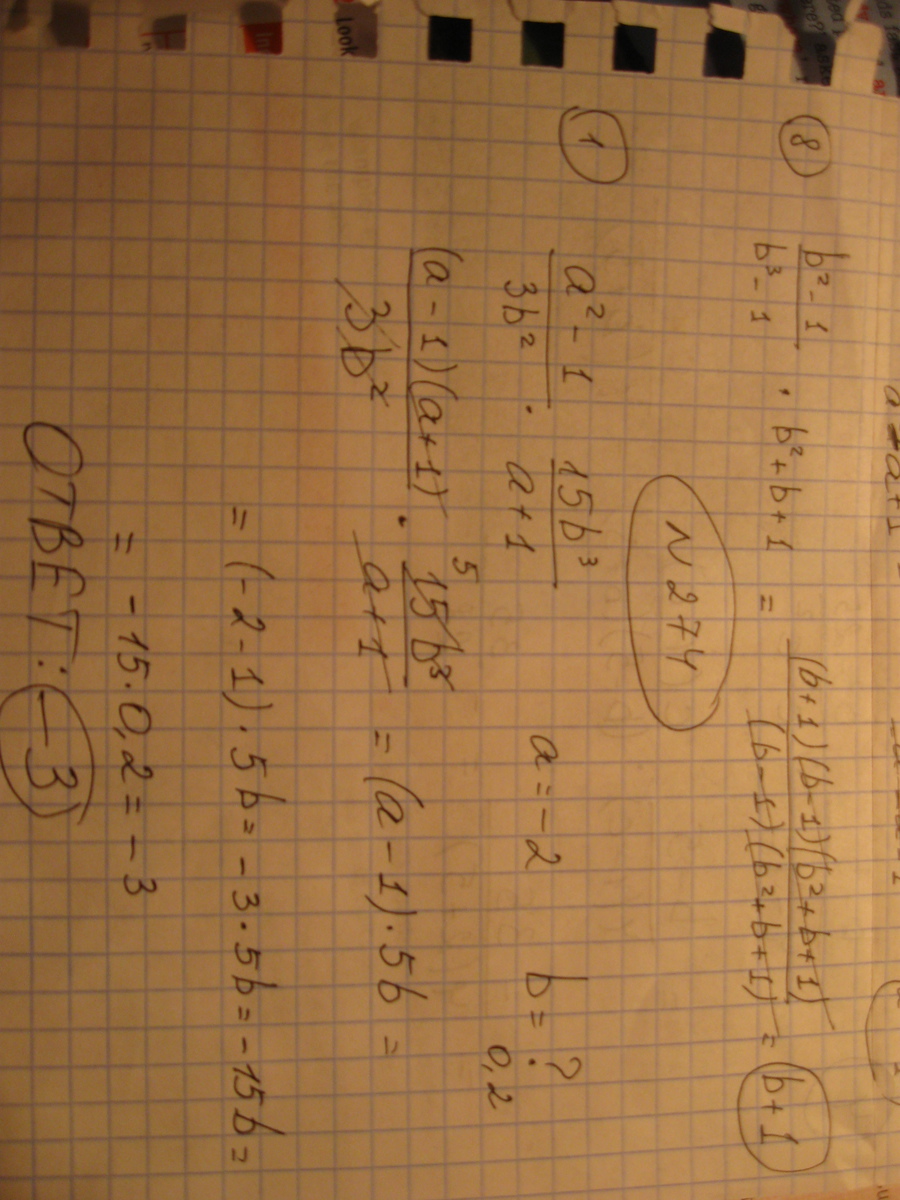 ⑧ (b²-1)/(b³-1) · b²+b+1 = ((b+1)(b-1)(b²+b+1))/((b-1)(b²+b+1)) = b+1
N 274
① (a²-1)/(3b²) · (15b³)/(a+1) a=-2 b=?
0,2
((a-1)(a+1))/(3b²) · (15b³)/(a+1) = (a-1)·5b =
5
= (-2-1)·5b = -3·5b = -15b =
= -15·0,2 = -3
ОТВЕТ: -3
look